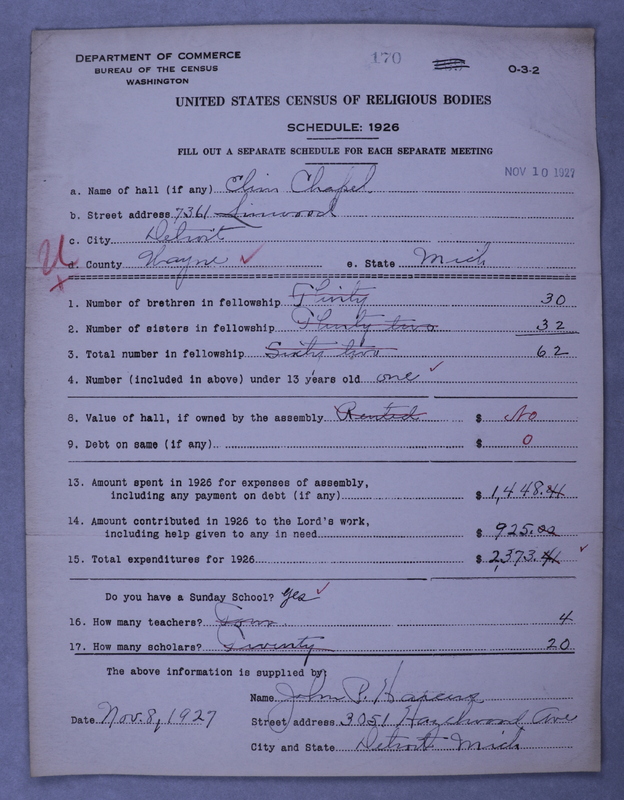 DEPARTMENT OF COMMERCE
BUREAU OF THE CENSUS
WASHINGTON
170
O-3-2
UNITED STATES CENSUS OF RELIGIOUS BODIES
SCHEDULE: 1926
FILL OUT A SEPARATE SCHEDULE FOR EACH SEPARATE MEETING
NOV 10 1927
a. Name of hall (if any) Elim Chapel
b. Street address 7361 Linwood
c. City Detroit
d. County Wayne ✓ e. State Mich
1. Number of brethren in fellowship Thirty 30
2. Number of sisters in fellowship Thirty two 32
3. Total number in fellowship Sixty two 62
4. Number (included in above) under 13 years old one ✓
8. Value of hall, if owned by the assembly Rented $ No
9. Debt on same (if any) $ 0
13. Amount spent in 1926 for expenses of assembly,
including any payment on debt (if any) $ 1,448.41
14. Amount contributed in 1926 to the Lord's work,
including help given to any in need $ 925.00
15. Total expenditures for 1926 $ 2,373.41 ✓
Do you have a Sunday School? Yes ✓
16. How many teachers? Four 4
17. How many scholars? Twenty 20
The above information is supplied by:
Name John P.
Date Nov. 8, 1927 Street address 3051 Hazelwood Ave
City and State Detroit Mich